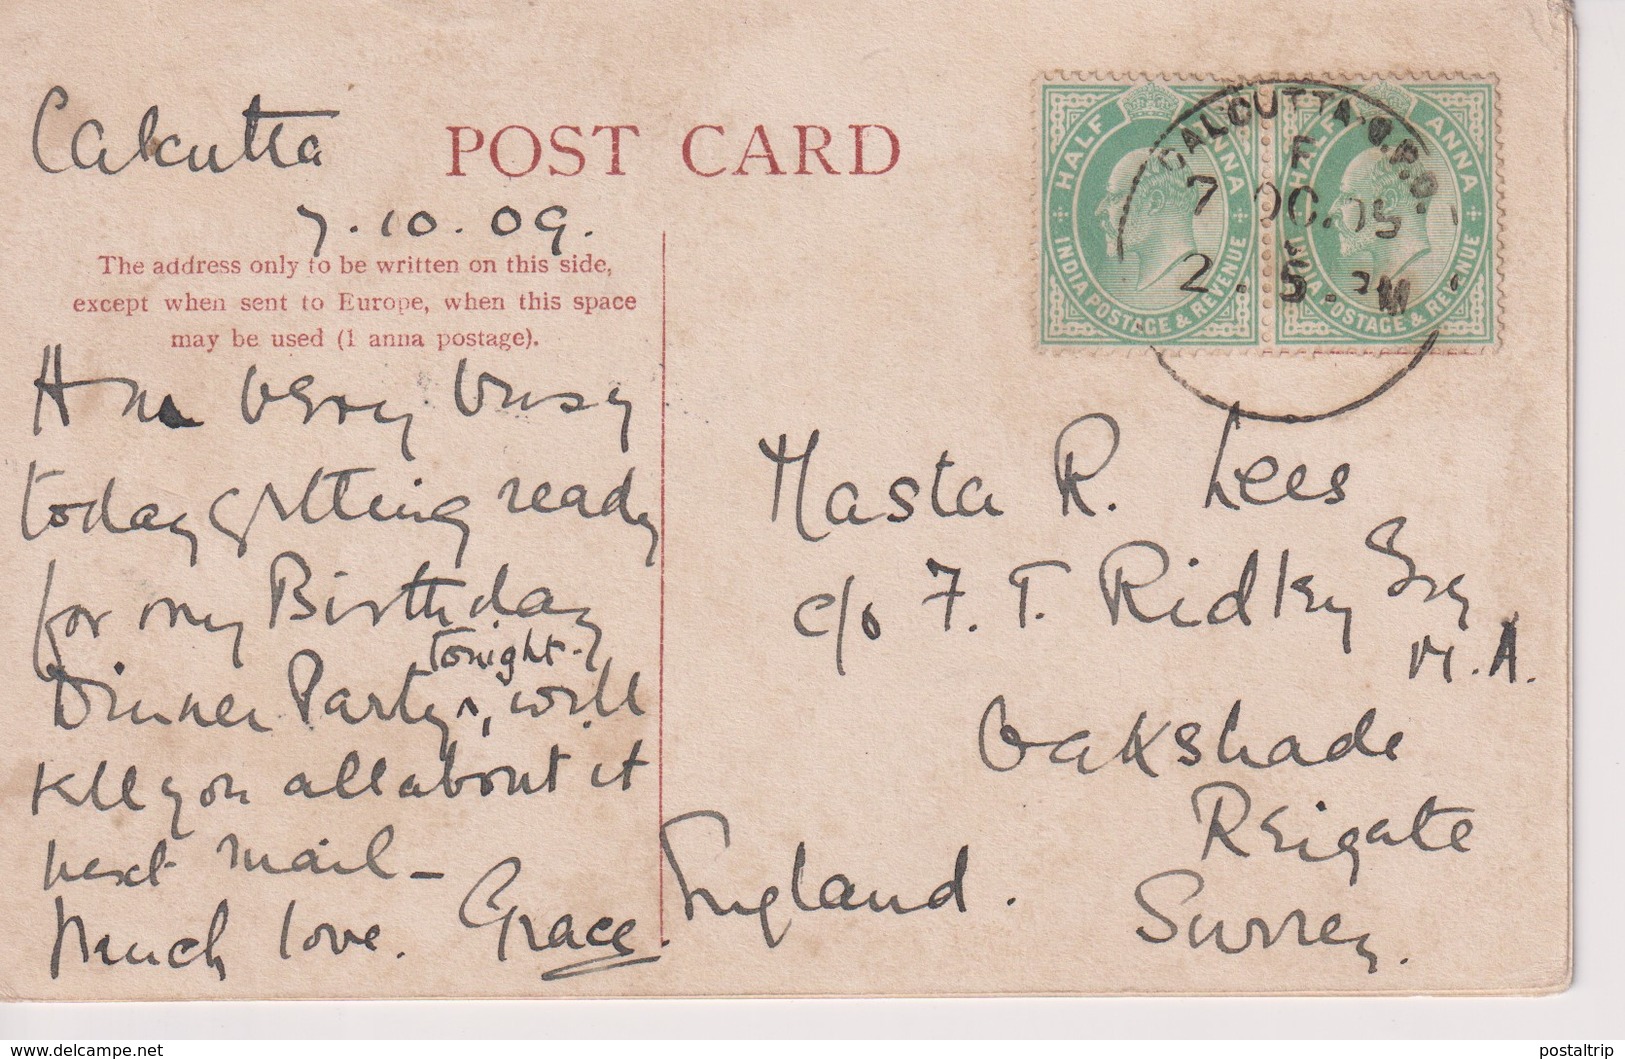 Calcutta
7.10.09.
POST CARD
The address only to be written on this side,
except when sent to Europe, when this space
may be used (1 anna postage).
Am very busy
today getting ready
for my Birthday
Dinner Party ^ tonight, will
tell you all about it
next mail –
Much love. Grace.
HALF ANNA
INDIA POSTAGE & REVENUE
HALF ANNA
INDIA POSTAGE & REVENUE
CALCUTTA G.P.O.
F
7 OC.
2.
Masta R. Lees
c/o F. T. Ridley Esq
M.A.
Oakshade
Reigate
Surrey.
England.
www.delcampe.net
postaltrip